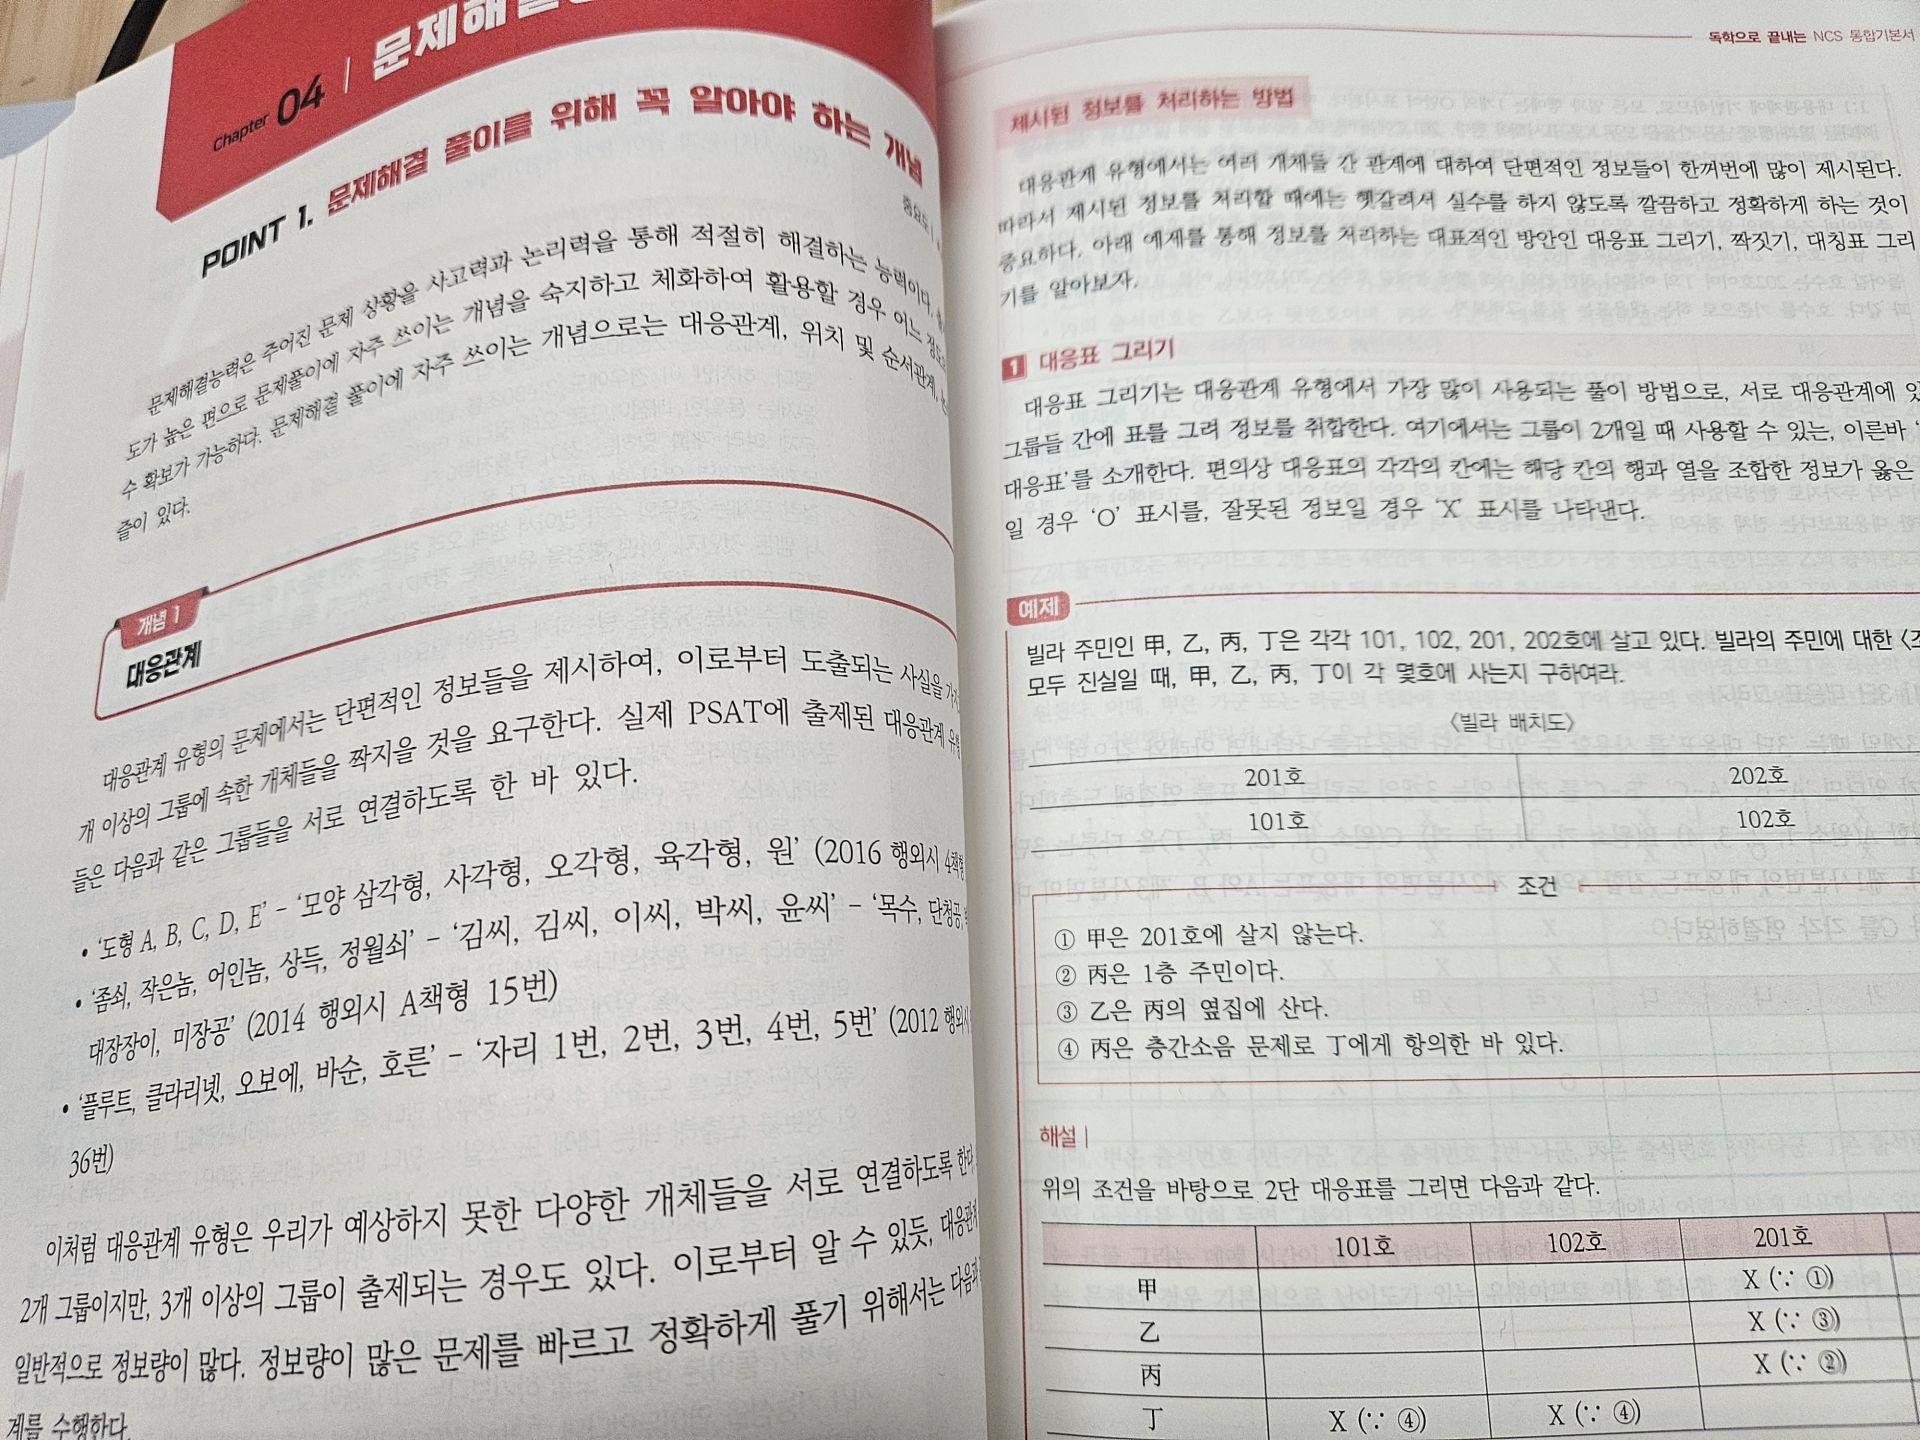 Chapter 04 | 문제해결
POINT 1. 문제해결 풀이를 위해 꼭 알아야 하는 개념
중요도
문제해결능력은 주어진 문제 상황을 사고력과 논리력을 통해 적절히 해결하는 능력이다.
도가 높은 편으로 문제풀이에 자주 쓰이는 개념을 숙지하고 체화하여 활용할 경우 어느 정도의
수 확보가 가능하다. 문제해결 풀이에 자주 쓰이는 개념으로는 대응관계, 위치 및 순서관계, 논
즐이 있다.
개념 1
대응관계
대응관계 유형의 문제에서는 단편적인 정보들을 제시하여, 이로부터 도출되는 사실을
개 이상의 그룹에 속한 개체들을 짝지을 것을 요구한다. 실제 PSAT에 출제된 대응관계 유형
들은 다음과 같은 그룹들을 서로 연결하도록 한 바 있다.
• ‘도형 A, B, C, D, E’ – ‘모양 삼각형, 사각형, 오각형, 육각형, 원’ (2016 행외시 4책형
• ‘좀쇠, 작은놈, 어인놈, 상득, 정월쇠’ – ‘김씨, 김씨, 이씨, 박씨, 윤씨’ – ‘목수, 단청공,
대장장이, 미장공’ (2014 행외시 A책형 15번)
• ‘플루트, 클라리넷, 오보에, 바순, 호른’ – ‘자리 1번, 2번, 3번, 4번, 5번’ (2012 행외시
36번)
이처럼 대응관계 유형은 우리가 예상하지 못한 다양한 개체들을 서로 연결하도록 한다.
2개 그룹이지만, 3개 이상의 그룹이 출제되는 경우도 있다. 이로부터 알 수 있듯, 대응관계
일반적으로 정보량이 많다. 정보량이 많은 문제를 빠르고 정확하게 풀기 위해서는 다음과
계를 수행한다.
독학으로 끝내는 NCS 통합기본서
제시된 정보를 처리하는 방법
대응관계 유형에서는 여러 개체들 간 관계에 대하여 단편적인 정보들이 한꺼번에 많이 제시된다.
따라서 제시된 정보를 처리할 때에는 헷갈려서 실수를 하지 않도록 깔끔하고 정확하게 하는 것이
중요하다. 아래 예제를 통해 정보를 처리하는 대표적인 방안인 대응표 그리기, 짝짓기, 대칭표 그리
기를 알아보자.
1 대응표 그리기
대응표 그리기는 대응관계 유형에서 가장 많이 사용되는 풀이 방법으로, 서로 대응관계에 있
그룹들 간에 표를 그려 정보를 취합한다. 여기에서는 그룹이 2개일 때 사용할 수 있는, 이른바 ‘
대응표’를 소개한다. 편의상 대응표의 각각의 칸에는 해당 칸의 행과 열을 조합한 정보가 옳은
일 경우 ‘O’ 표시를, 잘못된 정보일 경우 ‘X’ 표시를 나타낸다.
예제
빌라 주민인 甲, 乙, 丙, 丁은 각각 101, 102, 201, 202호에 살고 있다. 빌라의 주민에 대한 <조
모두 진실일 때, 甲, 乙, 丙, 丁이 각 몇호에 사는지 구하여라.
<빌라 배치도>
201호 202호
101호 102호
조건
① 甲은 201호에 살지 않는다.
② 丙은 1층 주민이다.
③ 乙은 丙의 옆집에 산다.
④ 丙은 층간소음 문제로 丁에게 항의한 바 있다.
해설 |
위의 조건을 바탕으로 2단 대응표를 그리면 다음과 같다.
101호 102호 201호
甲 X (∵ ①)
乙 X (∵ ③)
丙 X (∵ ②)
丁 X (∵ ④) X (∵ ④)